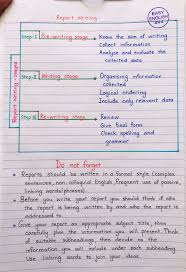 Report Writing
EASY ENGLISH
Step-I Pre-writing stage → Know the aim of writing
Collect information
Analyse and evaluate the
collected data
Report writing - stages
Step-II Writing stage → Organising information
collected
Logical ordering
Include only relevant data
Step-III Re-writing stage → Review
Give final form
Check spelling and
grammar
Do not forget
Reports should be written in a formal style (complex
sentences, non colloquial English, frequent use of passive,
linking words/phrases)
Before you write your report you should think if who
the report is being written by and who the report is
addressed to.
Give your report an appropriate subject title, then
carefully plan the information you will present. Think
of suitable subheadings, then decide on the
information you will include under each subheading
Use linking words to join your ideas